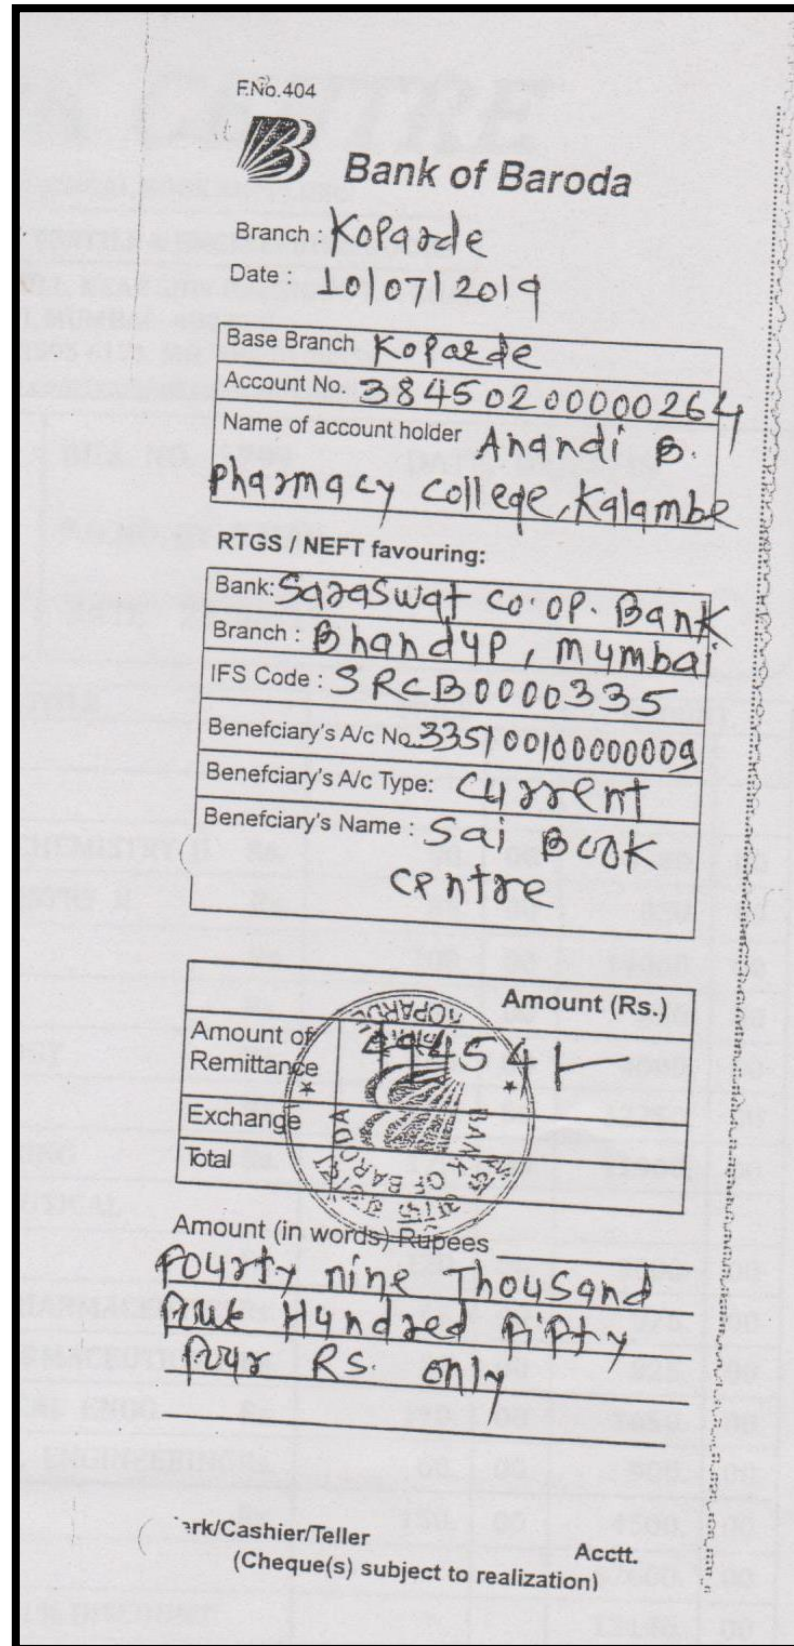 F.No.404
Bank of Baroda
Branch : Koparde
Date : 10/07/2019
Base Branch Koparde
Account No. 38450200000264
Name of account holder Anandi B.
Pharmacy College, Kalambe
RTGS / NEFT favouring:
Bank: Saraswat co.op. Bank
Branch : Bhandup, Mumbai
IFS Code : SRCB0000335
Benefciary's A/c No. 335100100000009
Benefciary's A/c Type: Current
Benefciary's Name : Sai Book
Centre
Amount (Rs.)
Amount of
Remittance
Exchange
Total
BANK OF BARODA
Amount (in words) Rupees
Fourty nine Thousand
Hundred Fifty
Four Rs. only
erk/Cashier/Teller
Acctt.
(Cheque(s) subject to realization)